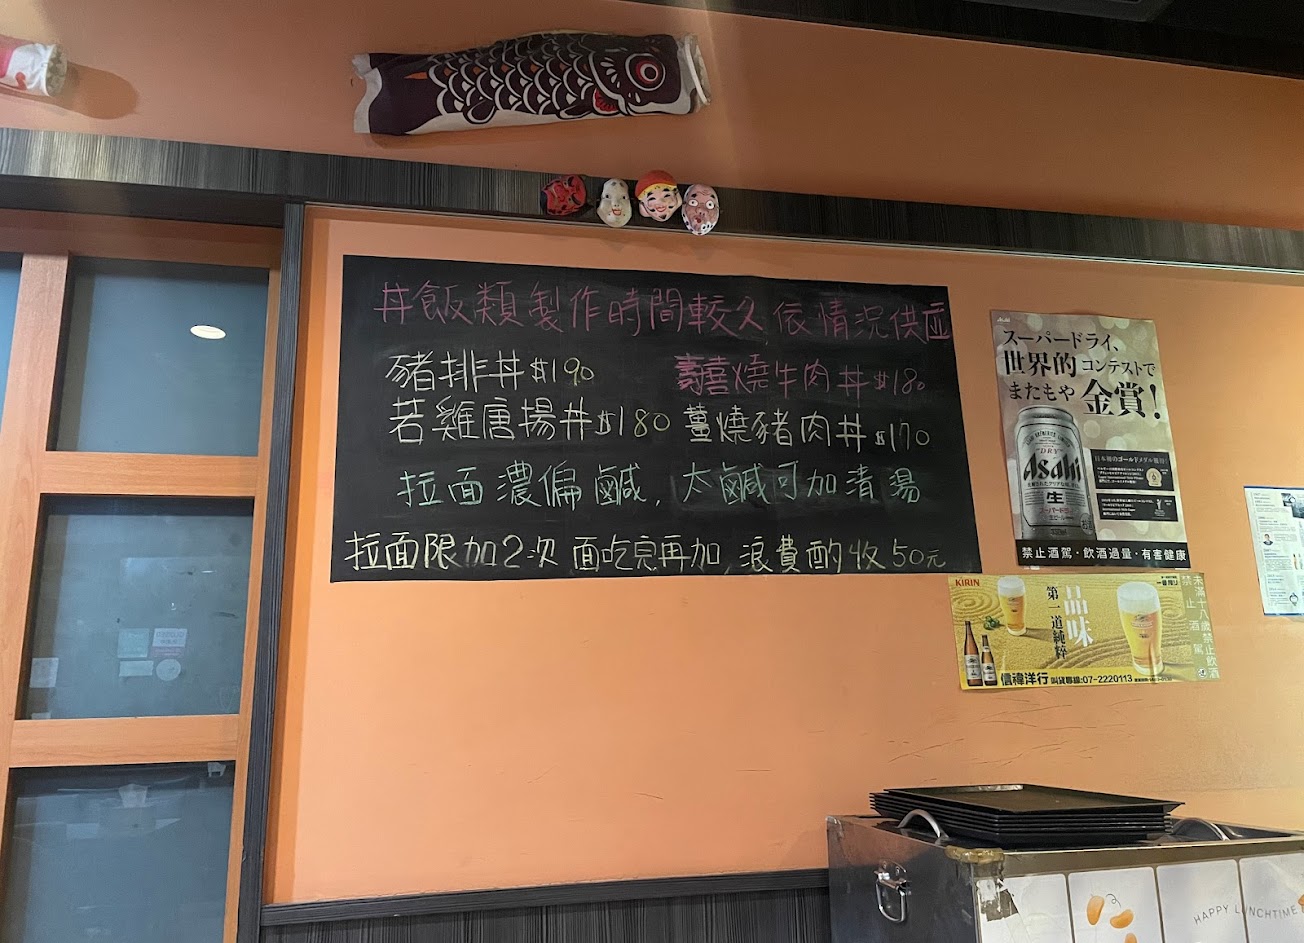 丼飯類製作時間較久,依情況供應
豬排丼$190
壽喜燒牛肉丼$180
若雞唐揚丼$180
薑燒豬肉丼$170
拉面濃偏鹹,太鹹可加清湯
拉面限加2次 面吃完再加,浪費酌收50元
Asahi
スーパードライ、
世界的コンテストで
またもや金賞!
DRY
Asahi
生
スーパードライ
日本初のゴールドメダル獲得!
禁止酒駕・飲酒過量・有害健康
KIRIN
一番搾り
品味
第一道純粹
信禕洋行 叫貨專線:07-2220113
未滿十八歲禁止飲酒
禁止酒駕
HAPPY LUNCHTIME